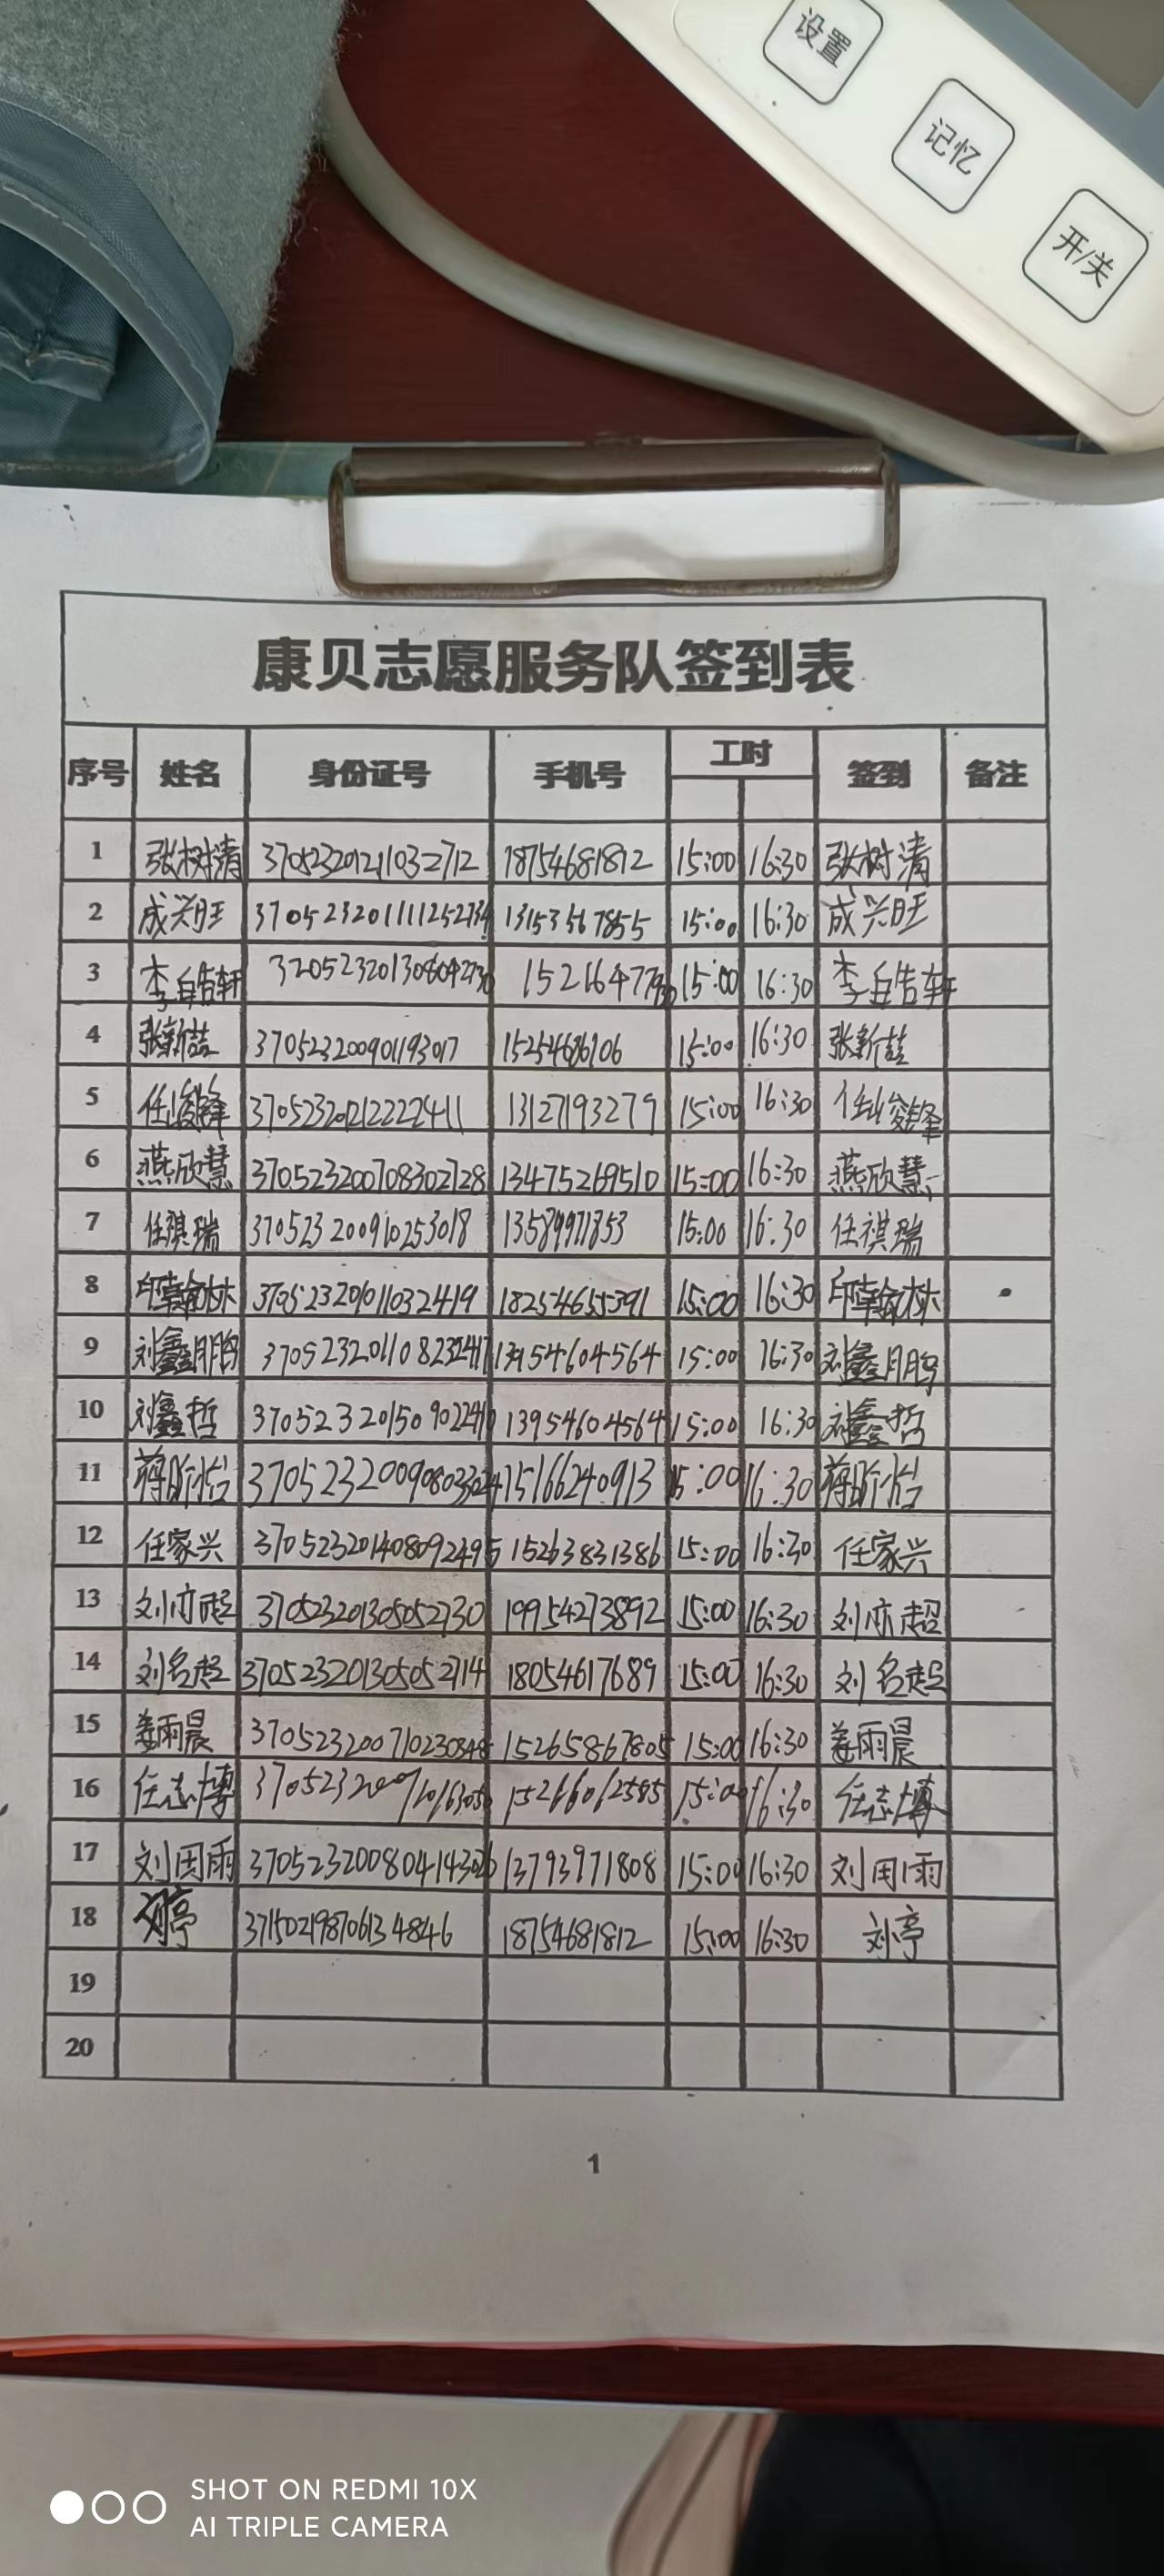 设置
记忆
开/关
康贝志愿服务队签到表
序号 姓名 身份证号 手机号 工时 签到 备注
1 张树清 370523201211032712 18754681812 15:00 16:30 张树清
2 成兴旺 13153567855 15:00 16:30 成兴旺
3 15:00 16:30
4 370523200901193017 15254686106 15:00 16:30
5 任峻锋 370523201212222411 13127193279 15:00 16:30 任峻锋
6 燕欣慧 370523200708302728 13475269510 15:00 16:30 燕欣慧
7 任祺瑞 370523200910253018 13589971353 15:00 16:30 任祺瑞
8 370523201011032419 18254655391 15:00 16:30
9 刘鑫鹏 370523201108232417 13954604564 15:00 16:30 刘鑫鹏
10 刘鑫哲 13954604564 15:00 16:30 刘鑫哲
11 15166240913 15:00 16:30
12 任家兴 370523201408092495 15263831386 15:00 16:30 任家兴
13 刘亦超 370523201305052730 19954273892 15:00 16:30 刘亦超
14 刘名超 370523201305052714 18054617689 15:00 16:30 刘名超
15 姜雨晨 15265867805 15:00 16:30 姜雨晨
16 任志博 15266062585 15:00 16:30 任志博
17 13793971808 15:00 16:30
18 刘亭 371502198706134846 18754681812 15:00 16:30 刘亭
19
20
1
SHOT ON REDMI 10X
AI TRIPLE CAMERA